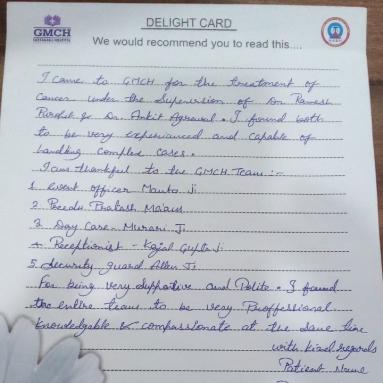 GMCH
DELIGHT CARD
We would recommend you to read this....
I came to GMCH for the treatment of
Cancer under the Supervision of Dr. Ramesh
Purohit & Dr. Ankit Agrawal. I found both
to be very experianced and capable of
handling Complex cases.
I am thankful to the GMCH Team:-
1. event officer Manto Ji
2. Prakash
3 Day Care - Murari Ji
4. Receptionist - Kajal Gupta Ji
5. Security guard Allen Ji
For being very Supportive and Polite. I found
the entire team to be very Proffessional
Knowledgable & compassionate at the same time
with kind regards
Patient Name